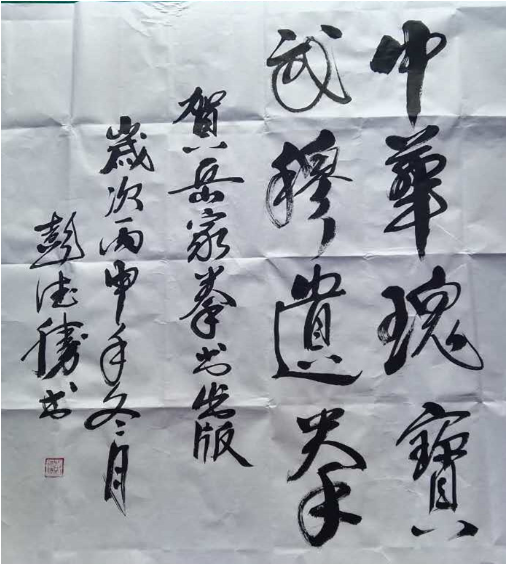 中華瑰寶
武穆遺拳
賀岳家拳书出版
歲次丙申年冬月
彭法勝书